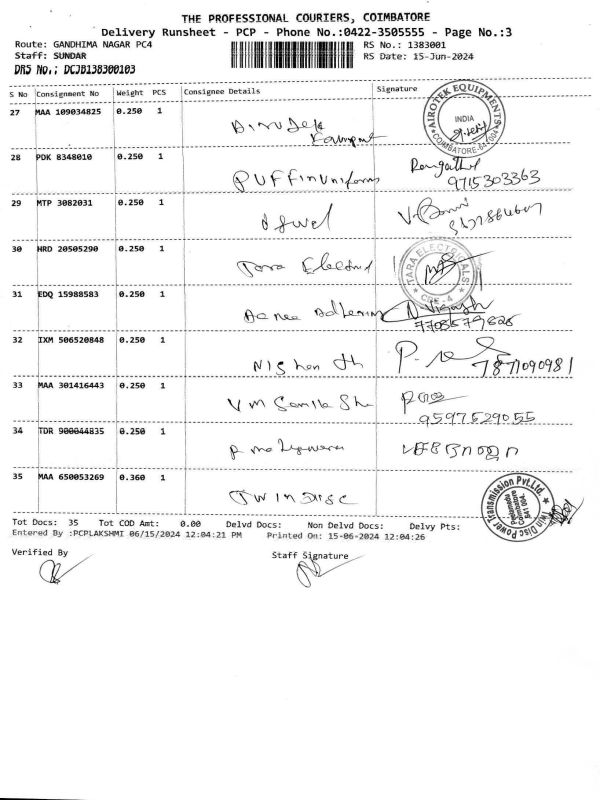 THE PROFESSIONAL COURIERS, COIMBATORE
Delivery Runsheet - PCP - Phone No.:0422-3505555 - Page No.:3
Route: GANDHIMA NAGAR PC4
RS No.: 1383001
Staff: SUNDAR
RS Date: 15-Jun-2024
DRS No.: DCJB138300103
S No Consignment No Weight PCS Consignee Details Signature
27 MAA 109034825 0.250 1
AIROTEK EQUIPMENTS
INDIA
COIMBATORE-641 004
28 PDK 8348010 0.250 1 PUFFin Uniforms
9715303363
29 MTP 3082031 0.250 1
30 HRD 20505290 0.250 1 Tara
TARA ELECTRICALS
CBE - 4
31 EDQ 15988583 0.250 1
32 IXM 506520848 0.250 1 Nishan
7871090981
33 MAA 301416443 0.250 1 VM
9597529055
34 TDR 900044835 0.250 1
35 MAA 650053269 0.360 1 TWINDISC
Twin Disc Power Transmission Pvt.Ltd.
Peelamedu
Coimbatore
641 004.
Tot Docs: 35 Tot COD Amt: 0.00 Delvd Docs: Non Delvd Docs: Delvy Pts:
Entered By :PCPLAKSHMI 06/15/2024 12:04:21 PM Printed On: 15-06-2024 12:04:26
Verified By Staff Signature